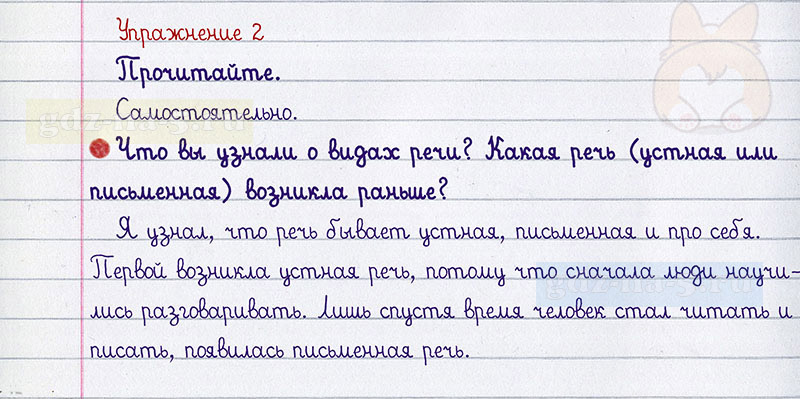 Упражнение 2
Прочитайте.
Самостоятельно.
Что вы узнали о видах речи? Какая речь (устная или
письменная) возникла раньше?
Я узнал, что речь бывает устная, письменная и про себя.
Первой возникла устная речь, потому что сначала люди научи-
лись разговаривать. Лишь спустя время человек стал читать и
писать, появилась письменная речь.